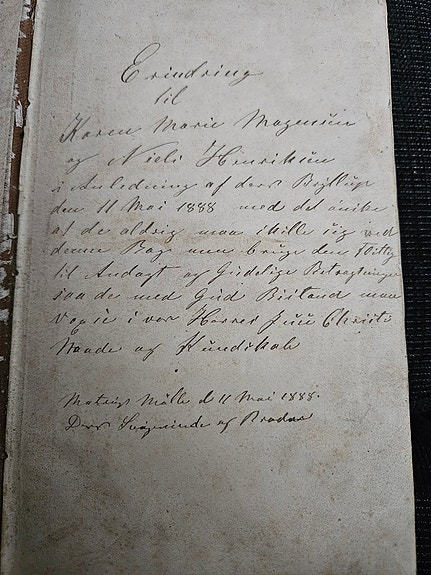 Erindring
til
Karen Marie Mogensen
og Niels Henriksen
i Anledning af ders Bryllup
den 11 Mai 1888 med det önske
at de aldrig maa skille sig ved
denne Bog men bruge den flittig
til Andagt og Gudelige Betragtninger
saa de med Guds Bistand maa
voxse i vor Herres Jesu Christi
Naade og Kundskab
Mölle d 11 Mai 1888.
Ders af